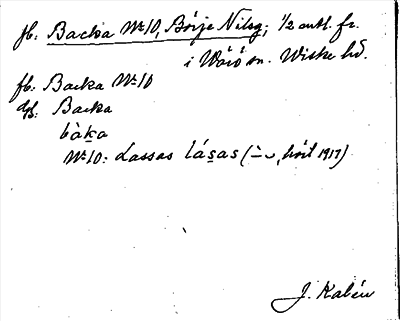 fb: Backa Nr 10, Börje Nilsg; 1/2 mtl. fr.
i Värö sn. Wiske hd.
fb: Backa Nr 10
Jb: Backa
bàka
Nr 10: Lassas lásas (– ᴗ, hört 1917)
J. Kalén